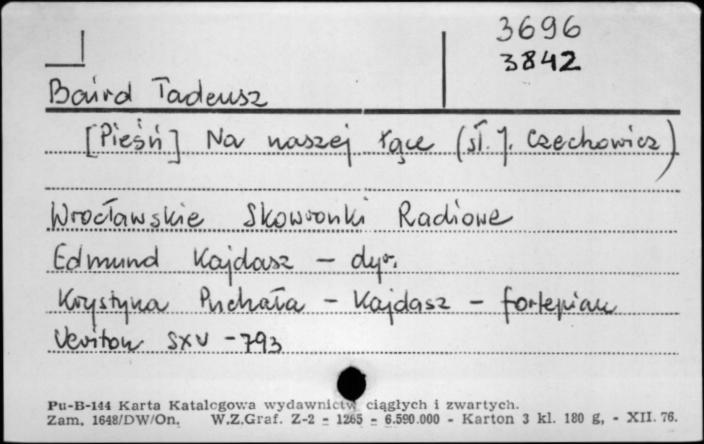 3696
3842
Baird Tadeusz
[Pieśń] Na naszej łące (sł. J. Czechowicz)
Wrocławskie Skowronki Radiowe
Edmund Kajdasz – dyr.
Krystyna Puchała – Kajdasz – fortepian
Veriton SXV – 793
Pu-B-144 Karta Katalogowa wydawnictw ciągłych i zwartych.
Zam. 1648/DW/On. W.Z.Graf. Z-2 - 1265 - 6.590.000 - Karton 3 kl. 180 g, - XII. 76.